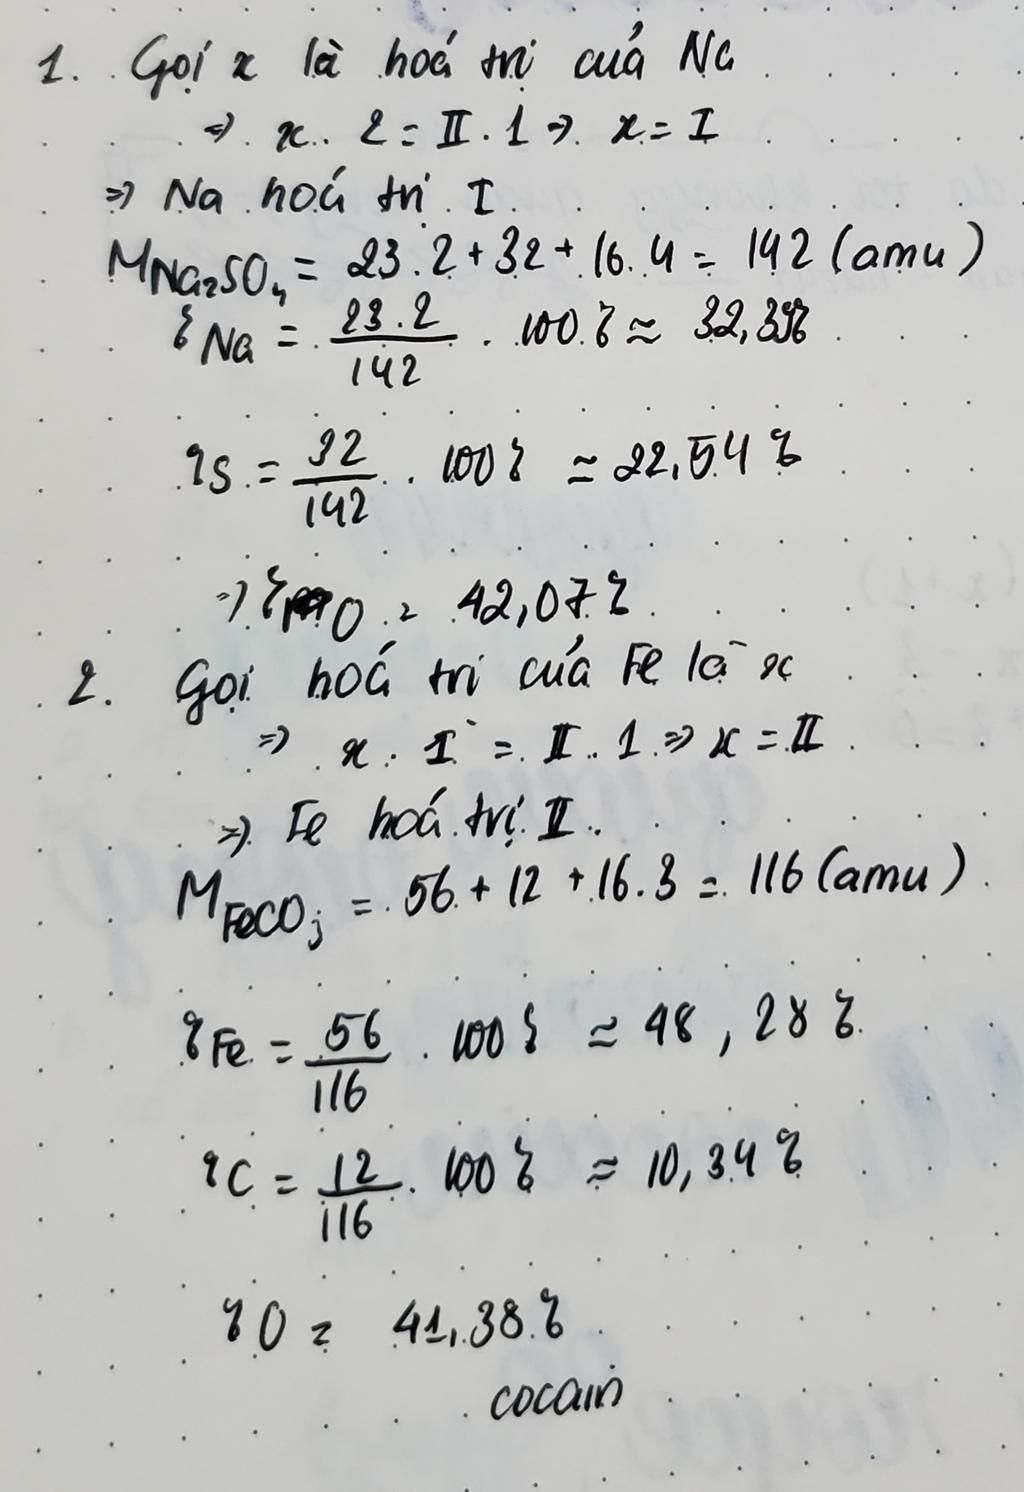 1. Gọi x là hoá trị của Na
=> x. 2 = II. 1 => x = I
=> Na hoá trị I
MNa₂SO₄ = 23.2 + 32 + 16.4 = 142 (amu)
%Na = 23.2/142 . 100% ≈ 32,39%
%S = 32/142 . 100% ≈ 22,54%
=> %O = 42,07%
2. Gọi hoá trị của Fe là x
=> x. I = II. 1 => x = II
=> Fe hoá trị II
MFeCO₃ = 56 + 12 + 16.3 = 116 (amu)
%Fe = 56/116 . 100% ≈ 48,28%
%C = 12/116 . 100% ≈ 10,34%
%O = 41,38%
cocain